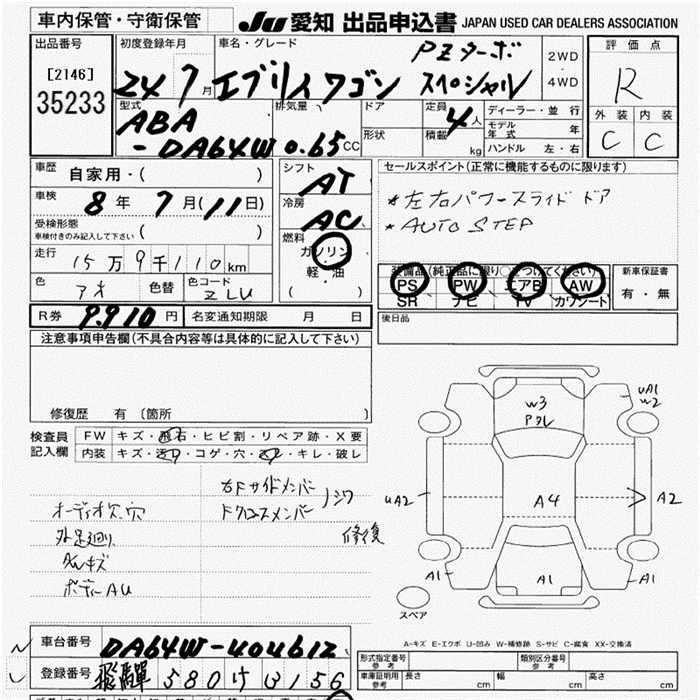 車内保管・守衛保管
JU 愛知 出品申込書 JAPAN USED CAR DEALERS ASSOCIATION
出品番号
[2146]
35233
初度登録年月
24 7月
車名・グレード
エブリイワゴン
PZターボ
スペシャル
2WD
・
4WD
評価点
R
外装 内装
C C
型式
ABA
-DA64W
排気量
0.65 CC
ドア
形状
定員 4人
積載 kg
ディーラー・並行
モデル年式 年
ハンドル 左・右
車歴
自家用・( )
車検
8年 7月(11日)
受検形態
車検付きのみ記入して下さい ( )
走行
15万9千110km
色
アオ
色替
色コード
ZLU
シフト
AT
冷房
AC
燃料
ガソリン
・
軽・油
( )
セールスポイント(正常に機能するものに限ります)
*左右パワースライドドア
*AUTO STEP
装備品(純正品に限り○をつけてください)
PS PW エアB AW
SR ナビ TV カワシート
新車保証書
有・無
R券 9.910円 名変通知期限 月 日
後日品
注意事項申告欄(不具合内容等は具体的に記入して下さい)
修復歴 有 〔箇所 〕
検査員
記入欄
FW キズ・飛石・ヒビ割・リペア跡・X要
内装 キズ・汚レ・コゲ・穴・・キレ・破レ
オーディオ欠.穴
外足廻り
ボディーAU
右Fサイドメンバー
Fクロスメンバー
シワ
修復
W3
Pクレ
UA1
W2
UA2
A4
A2
A1
A1
A1
スペア
A-キズ E-エクボ U-凹み W-補修跡 S-サビ C-腐食 XX-交換済
車台番号 DA64W-404612
登録番号 飛騨 580 す 3156
形式指定番号
参考
類別区分番号
参考
車庫証明用
参考
長さ cm 幅 cm 高さ cm